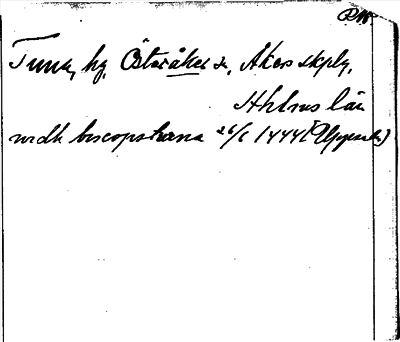 RW
Tuna, hg, Österåker sn, Åkers skply,
Sthlms län
widh biscopstuna 26/6 1444 (Uppsala)